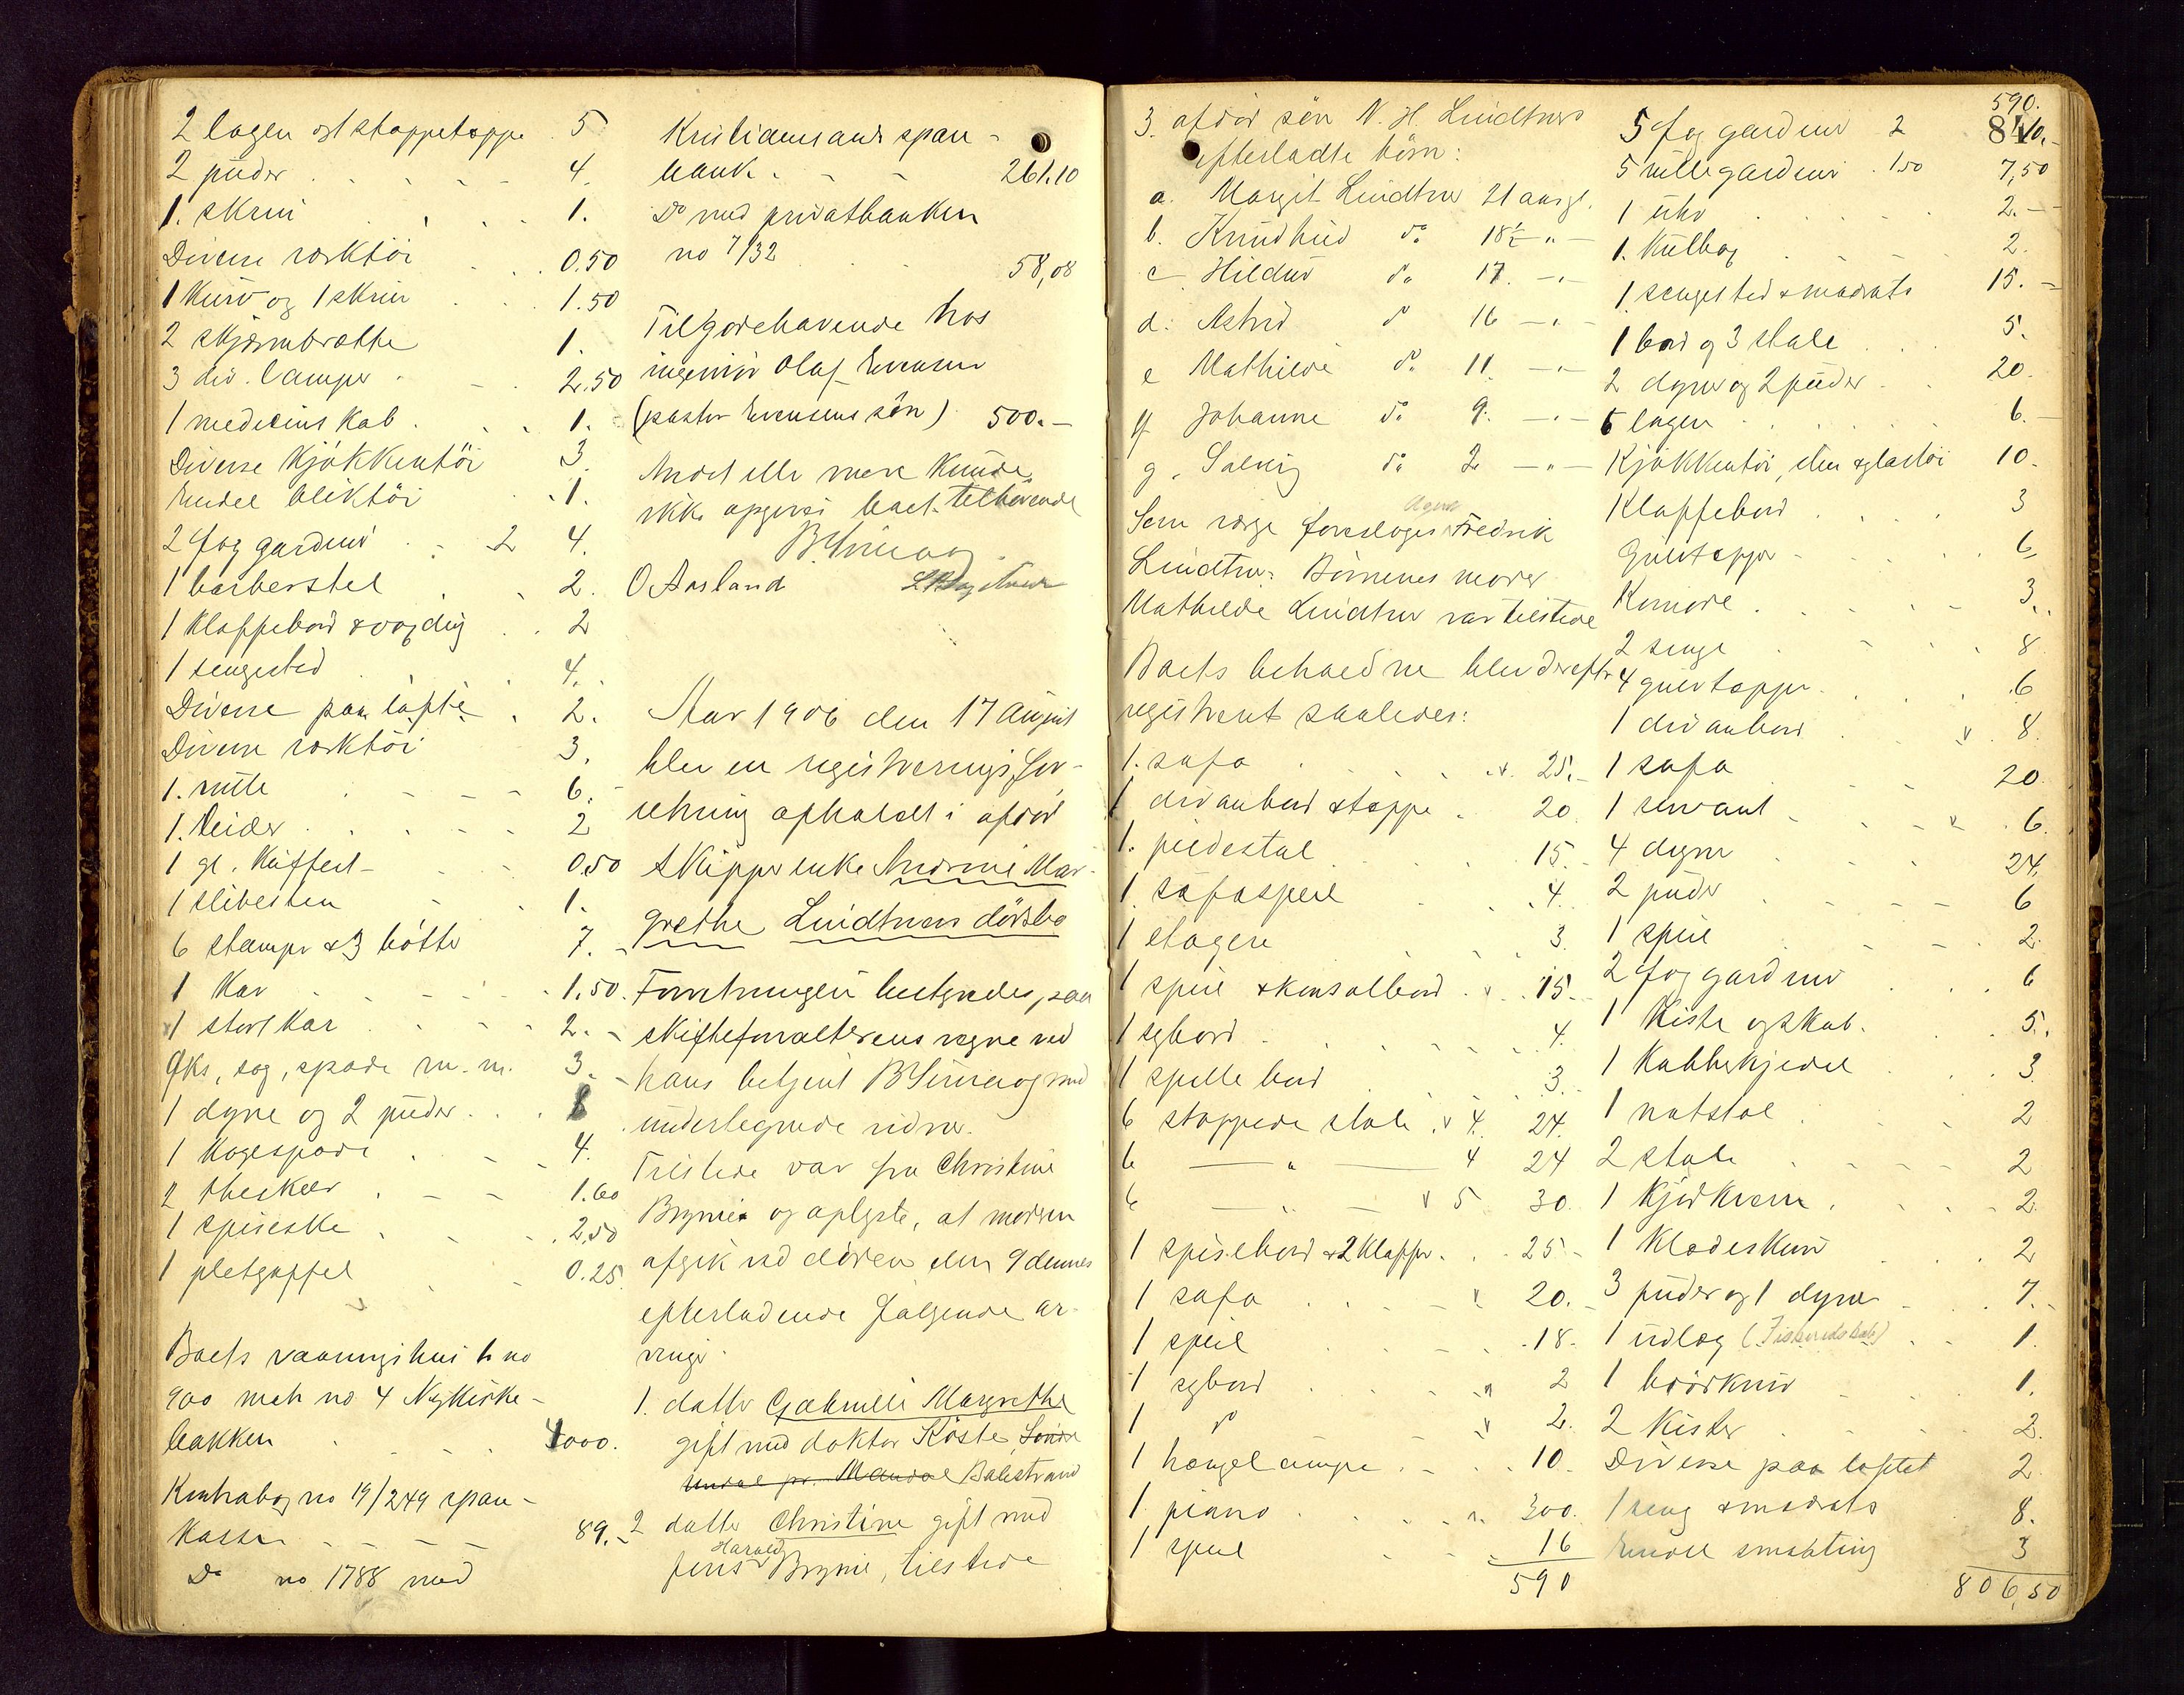 2 lagen og 1 stoppetæppe . 5
2 puder . . . 4.
1. skrin . . . 1.
Diverse værktöi . . . 0.50
1 kurv og 1 skrin . . 1.50
2 skjærmbrætte 1.
3 div. lamper . . 2.50
1 medicinskab . . . 1.
Diverse kjøkkentöi 3.
Endel bliktöi . 1.
2 fag gardiner . . 2 4.
1 barberstel . . 2.
1 klappebord & voxdug . . 2
1 sengested . . . 4.
Diverse paa loftet . 2.
Diverse værktöi 3.
1. rulle . . . 6.
1. leider . . . 2
1 gl. kuffert . . 0,50
1 slibesten . . 1.
6 stamper & 3 bötter 7.
1 Kar . . . 1.50.
1 stort kar . . . 2.
Öks, sag, spade m. m. 3.
1 dyne og 2 puder . . . 8
1 kagespade . . 4.
2 theskeer . . . 1.60
1 spiseske . . . 2,50
1 pletgaffel . . 0.25.
Boets vaaningshus b. no
900 matr no 4 Nykirke-
bakken . . . 4000.
Kontrabog no 19/249 spare-
kassen . . . 89.
Do no 1788 med
Kristianssands spare-
bank . . . 261.10
Do med privatbanken
no 7/32 . . 58,08
Tilgodehavende hos
ingeniör Olaf Evensen
(pastor Evensens sön) 500.-
Andet eller mere kunde
ikke opgives boet tilhörende
B Simonsen
O Aasland
Aar 1906 den 17 August
blev en registreringsfor-
retning afholdt i afdöd
skipperenke Andrine Mar-
grethe Lindtners dödsbo
Forretningen bestyredes paa
skifteforvalterens vegne ved
hans betjent B Simonsen med
undertegnede vidner.
Tilstede var fru Christine
Brynie og oplyste, at moderen
afgik ved döden den 9 dennes
efterladende fölgende ar-
vinger.
1. datter Gabrielle Margrethe
gift med doktor Koste, Söndre
Undal pr. Mandal Balestrand
2 datter Christine gift med
Harald
Jens Brynie, tilstede
3. afdöd sön N. H. Lindtners
efterladte börn:
a. Margit Lindtner 21 aar gl.
b. Knudhild do 18½ -"-
c. Hildur do 17. -"-
d. Astrid do 16 -"-
e Mathilde do 11. -"-
f Johanne do 9. -"-
g. Solveig do 2 -"-
Agent
Som værge foresloges Fredrik
Lindtner. Börnenes moder
Mathilde Lindtner var tilstede
Boets behold​ne blev derefter
registreret saaledes:
1. sofa . . . 25.-
1 divanbord & tæppe . 20.
1. piedestal . . . 15.
1. sofaspeil . . 4.
1 etagere . . 3.
1 speil & konsolbord . . 15.
1 sybord . . . 4.
1 spillebord . . 3.
6 stoppede stole . à 4. 24.
6 -"- 4 24
6 -"- à 5 30.
1 spisebord & 2 klapper . . 25-
1 sofa . . . 20.
1 speil . . . 18.
1 sybord . . . 2
1 do 2.
1 hængelampe . . . 10.
1. piano . . . 300.
1 speil . . 16
590
590.
5 fag gardiner 2 10.
5 rullegardiner . 1.50 7,50
1 uhr . . . 2.-
1. kulbox . . . 2.
1 sengested & madrats 15.-
1 bord og 3 stole . . 5.
2 dyner og 2 puder . . 20.
6 lagen . . . 6.-
Kjøkkentöi, sten & glastöi 10.
Klappebord . . . 3
Gulvtæpper . . . 6
Komode . . . 3.
2 senge . . . 8
4 gulvtæpper . . . 6
1 divanbord . . 8.
1 sofa 20.
1 servant . . . 6.
4 dyner . . . 24.
2 puder . . . 6
1 speil . . . 2.
2 fag gardiner . . . 6
1 kiste og skab . . 5.
1 kobberkjedel . . . 3.
1 natstol . . 2
2 stole . . . 2
1 kjödkvern . . . 2.
1 klædeskurv . . 2
3 puder og 1 dyne . . 7.
1 udlæg (Fiskeredskab) . . 1.
1 brödkurv . . 1.
2 kister . . . 2.
Diverse paa loftet 2.
1 seng & madrats 8.
Endel smaating 3
806,50